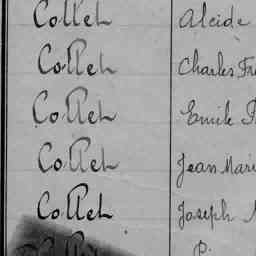 Collet Alcide
Collet Charles Fr
Collet Emile
Collet Jean Mari
Collet Joseph